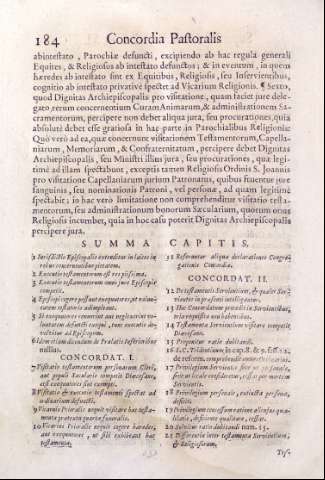 184 Concordia Pastoralis
abintestato, Parochiæ defuncti, excipiendo ab hac regula generali
Equites, & Religiosos ab intestato defunctos; & in eventum, in quem
hæredes ab intestato sint ex Equitibus, Religiosis, seu Inservientibus,
cognitio ab intestato privativè spectet ad Vicarium Religionis. ¶ Sexto,
quod Dignitas Archiepiscopalis pro visitatione, quam faciet jure dele-
gato rerum concernentium Curam Animarum, & administrationem Sa-
cramentorum, percipere non debet aliqua jura, seu procurationes, quia
absolutè debet esse gratiosa in hac parte in Parochialibus Religionis:
Quò verò ad ea, quæ concernunt visitationem Testamentorum, Capella-
niarum, Memoriarum, & Confraternitatum, percipere debet Dignitas
Archiepiscopalis, seu Ministri illius jura, seu procurationes, quæ legi-
timè ad illam spectabunt, exceptis tamen Religiosis Ordinis S. Joannis
pro visitatione Capellaniarum jurium Patronatus, quibus fruentur jure
sanguinis, seu nominationis Patroni, vel personæ, ad quam legitimè
spectabit; in hac verò limitatione non comprehenditur visitatio testa-
mentorum, seu administratorum bonorum Sæcularium, quorum onus
Religiosis incumbet, quia in hoc casu poterit Dignitas Archiepiscopalis
percipere jura.
SUMMA CAPITIS.
1 Jurisdictio Episcopalis extenditur in laicos in
rebus concernentibus pietatem.
2 Executio testamentorum est res piissima.
3 Executio testamentorum omni jure Episcopis
competit.
4 Episcopi cogere possunt exequutores, ut volun-
tatem testatoris adimpleant.
5 Si exequutores renuntiant aut negligunt vo-
luntatem defuncti exequi, tunc executio de-
volvitur ad Episcopum.
6 Idem etiam dicendum de Prælatis inferioribus
nullius.
CONCORDAT. I.
7 Visitatio testamentorum personarum Cleri,
aut populi Vicariis competit Diœcesano,
est exequutoris sui exempti.
8 Visitatio & executio testamenti spectat ad
ordinarium defuncti.
9 Vicarius Prioralis nequit visitare hæc testa-
menta prætextu quartæ funeralis.
10 Vicarius Prioralis nequit cogere hæredes,
aut exequutores, ut sibi exhibeant hæc
testamenta.
11 Referuntur aliquæ declarationes Congre-
gationis Concordiæ.
CONCORDAT. II.
12 De testamentis Servientium, & qualiter Ser-
vientes in præsenti intelligantur.
13 Hæ Concordiæ procedunt in Servientibus,
tria requisita non habentibus.
14 Testamenta Servientium visitare competit
Diœcesano.
15 Proponitur ratio dubitandi.
16 S. C. Tridentinum in cap. 8. & 9. sess. 22.
de reform. comprehendit omnes Ordinarios.
17 Privilegium Servientis sive sit personale,
sive sit locale consideretur, cessat per mortem
Servientis.
18 Privilegium personale, extincta persona,
cessat.
19 Privilegium concessum ratione alicujus qua-
litatis, deficiente qualitate, cessat.
20 Solvitur ratio dubitandi num. 15.
21 Differentia inter testamenta Servientium,
& Religiosorum.